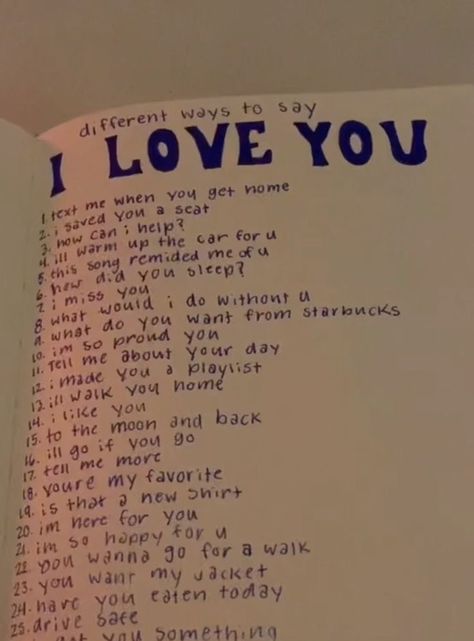 different ways to say
I LOVE YOU
1. text me when you get home
2. i saved you a seat
3. how can i help?
4. ill warm up the car for u
5. this song remided me of u
6. how did you sleep?
7. i miss you
8. what would i do without u
9. what do you want from starbucks
10. im so proud you
11. Tell me about your day
12. i made you a playlist
13. ill walk you home
14. i like you
15. to the moon and back
16. ill go if you go
17. tell me more
18. youre my favorite
19. is that a new shirt
20. im here for you
21. im so happy for u
22. you wanna go for a walk
23. you want my jacket
24. have you eaten today
25. drive safe
you something